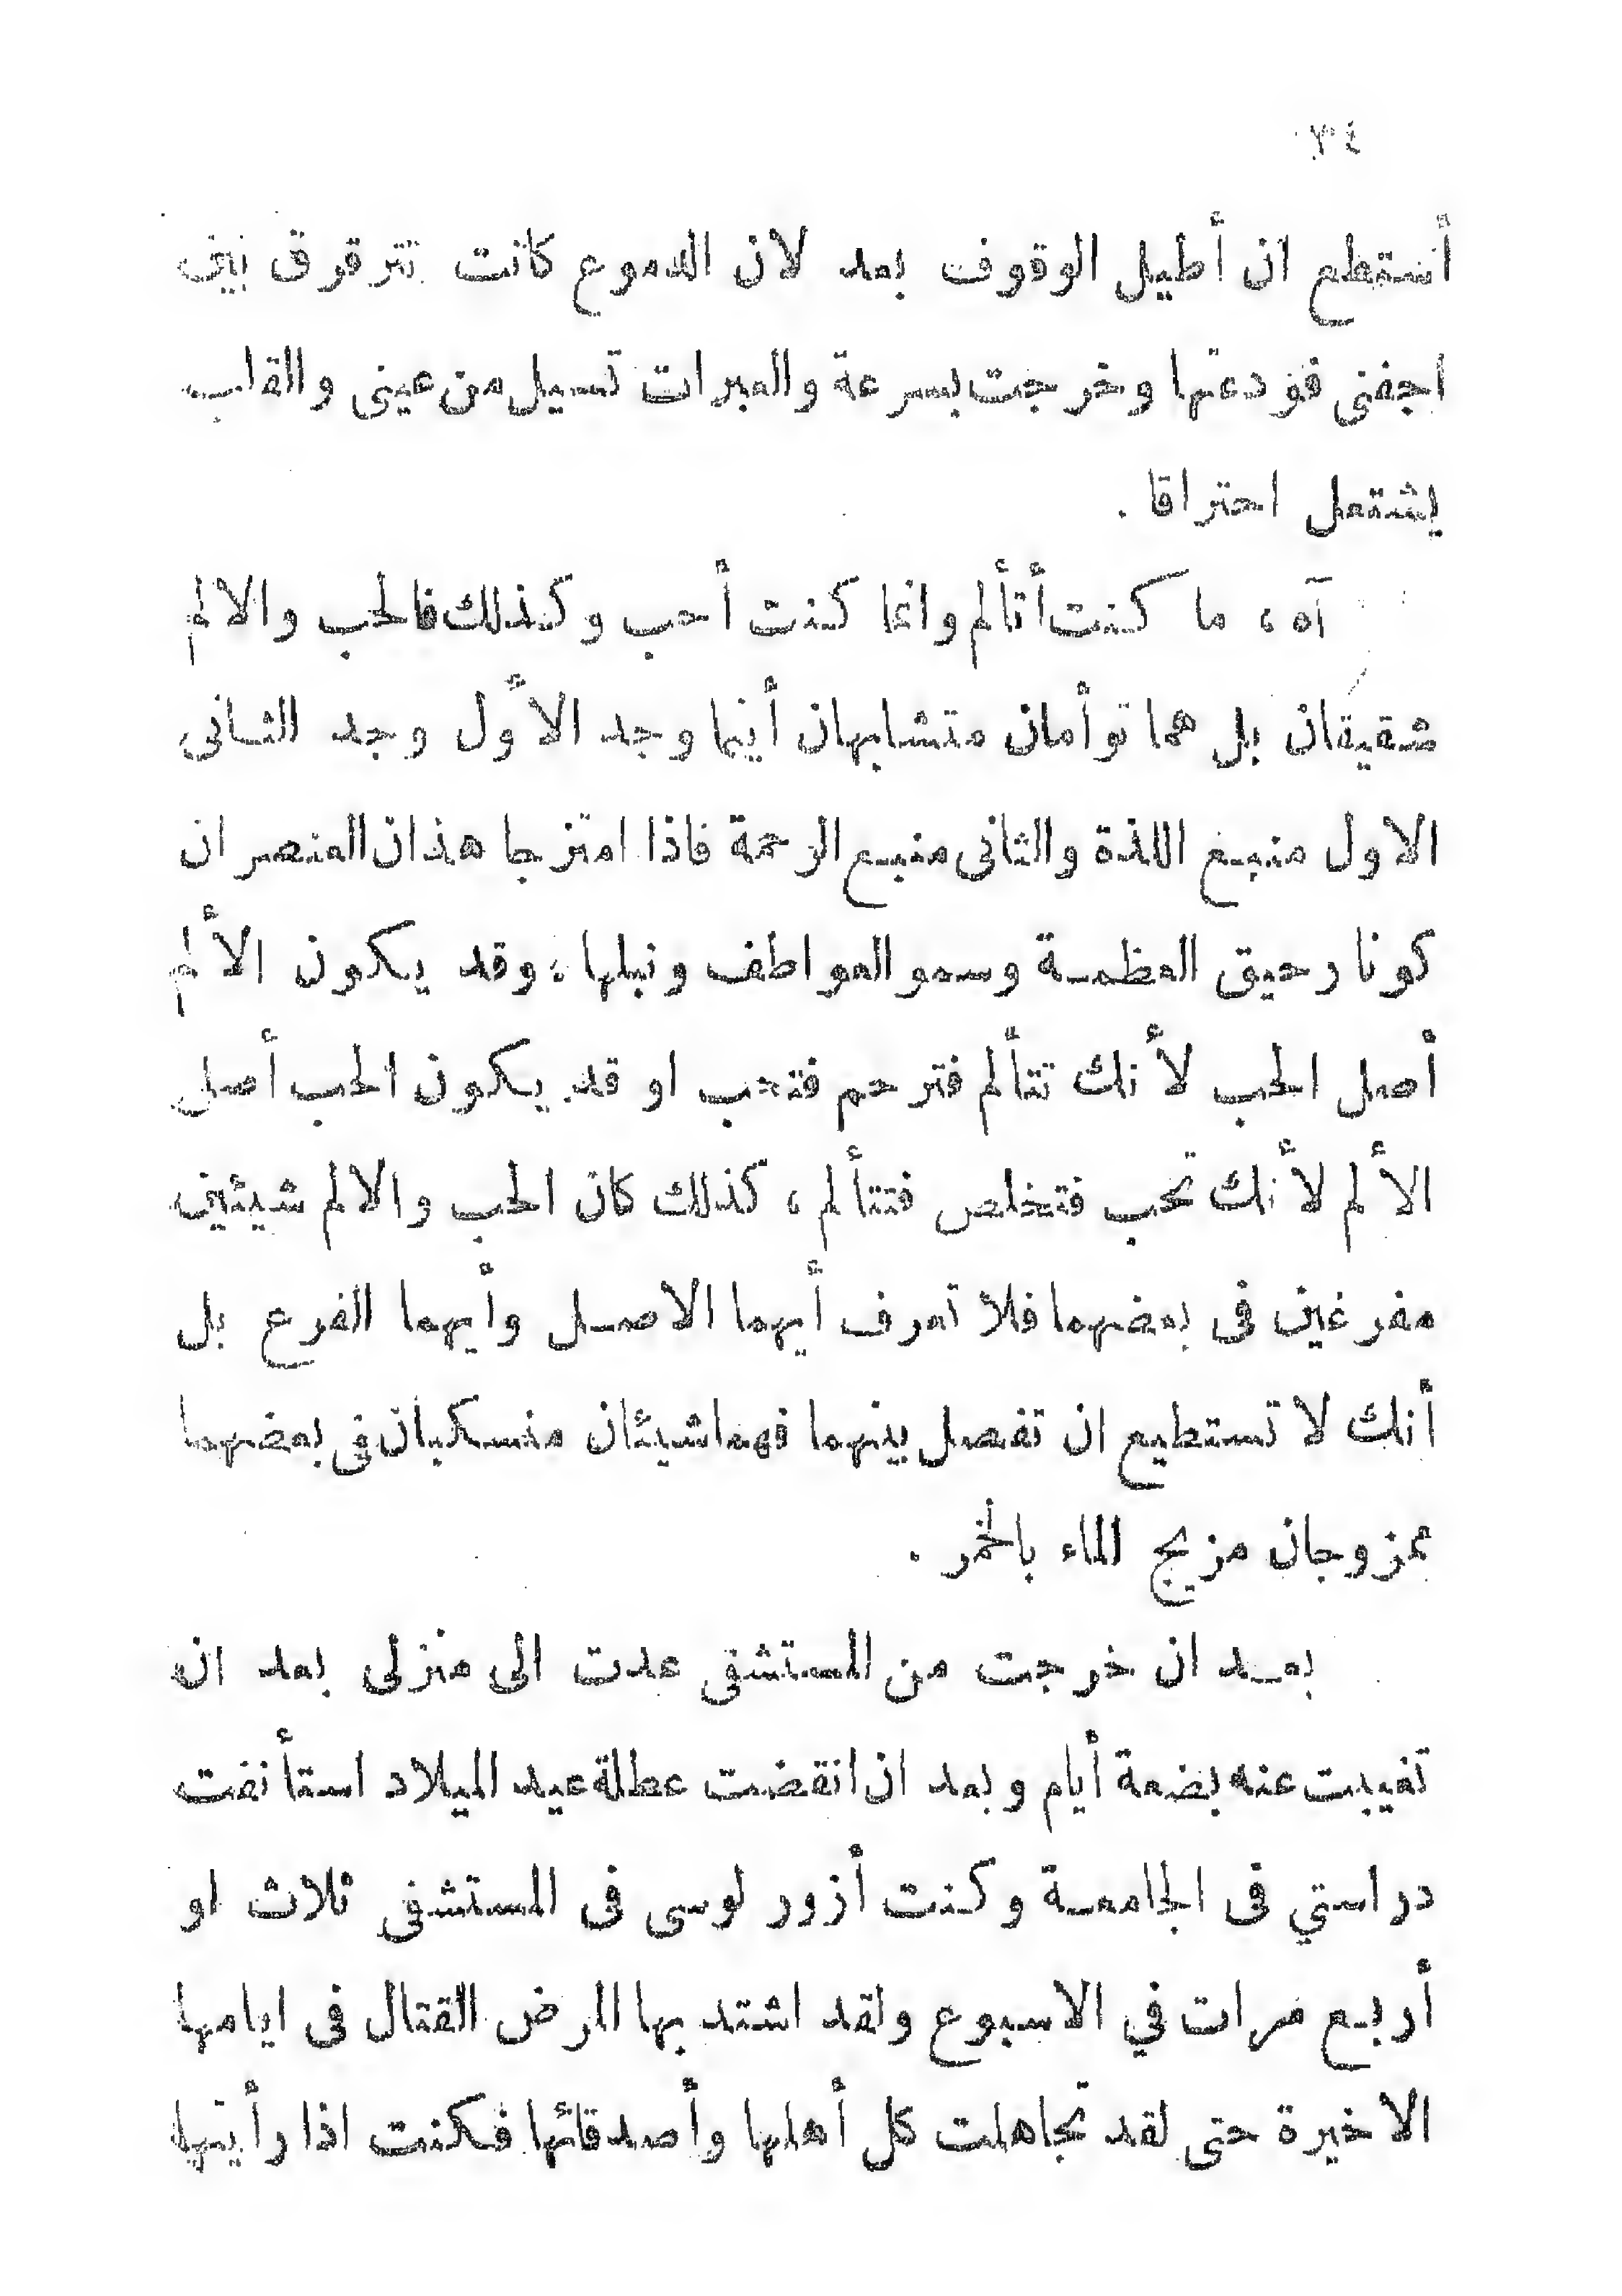 ٣٤
أستطع ان أطيل الوقوف بعد لان الدموع كانت تترقرق بين
اجفنى فودعتها وخرجت بسرعة والعبرات تسيل من عينى والقلب
يشتعل احتراقا .
آه ، ما كنت أتألم وانما كنت أحب وكذلك فالحب والالم
شقيقان بل هما توأمان متشابهان أينما وجد الأول وجد الثانى
الاول منبع اللذة والثانى منبع الرحمة فاذا امتزجا هذان العنصران
كونا رحيق العظمة وسمو العواطف ونبلها ، وقد يكون الألم
أصل الحب لأنك تتألم فترحم فتحب او قد يكون الحب أصل
الألم لأنك تحب فتخلص فتتألم ، كذلك كان الحب والالم شيئين
مفرغين فى بعضهما فلا تعرف أيهما الاصل وأيهما الفرع بل
أنك لا تستطيع ان تفصل بينهما فهما شيئان منسكبان فى بعضهما
ممزوجان مزيج الماء بالخمر .
بعد ان خرجت من المستشفى عدت الى منزلى بعد ان
تغيبت عنه بضعة أيام وبعد ان انقضت عطلة عيد الميلاد استأنفت
دراستي فى الجامعة وكنت أزور لوسى فى المستشفى ثلاث او
أربع مرات في الاسبوع ولقد اشتد بها المرض القتال فى ايامها
الاخيرة حتى لقد تجاهلت كل أهلها وأصدقائها فكنت اذا رأيتها